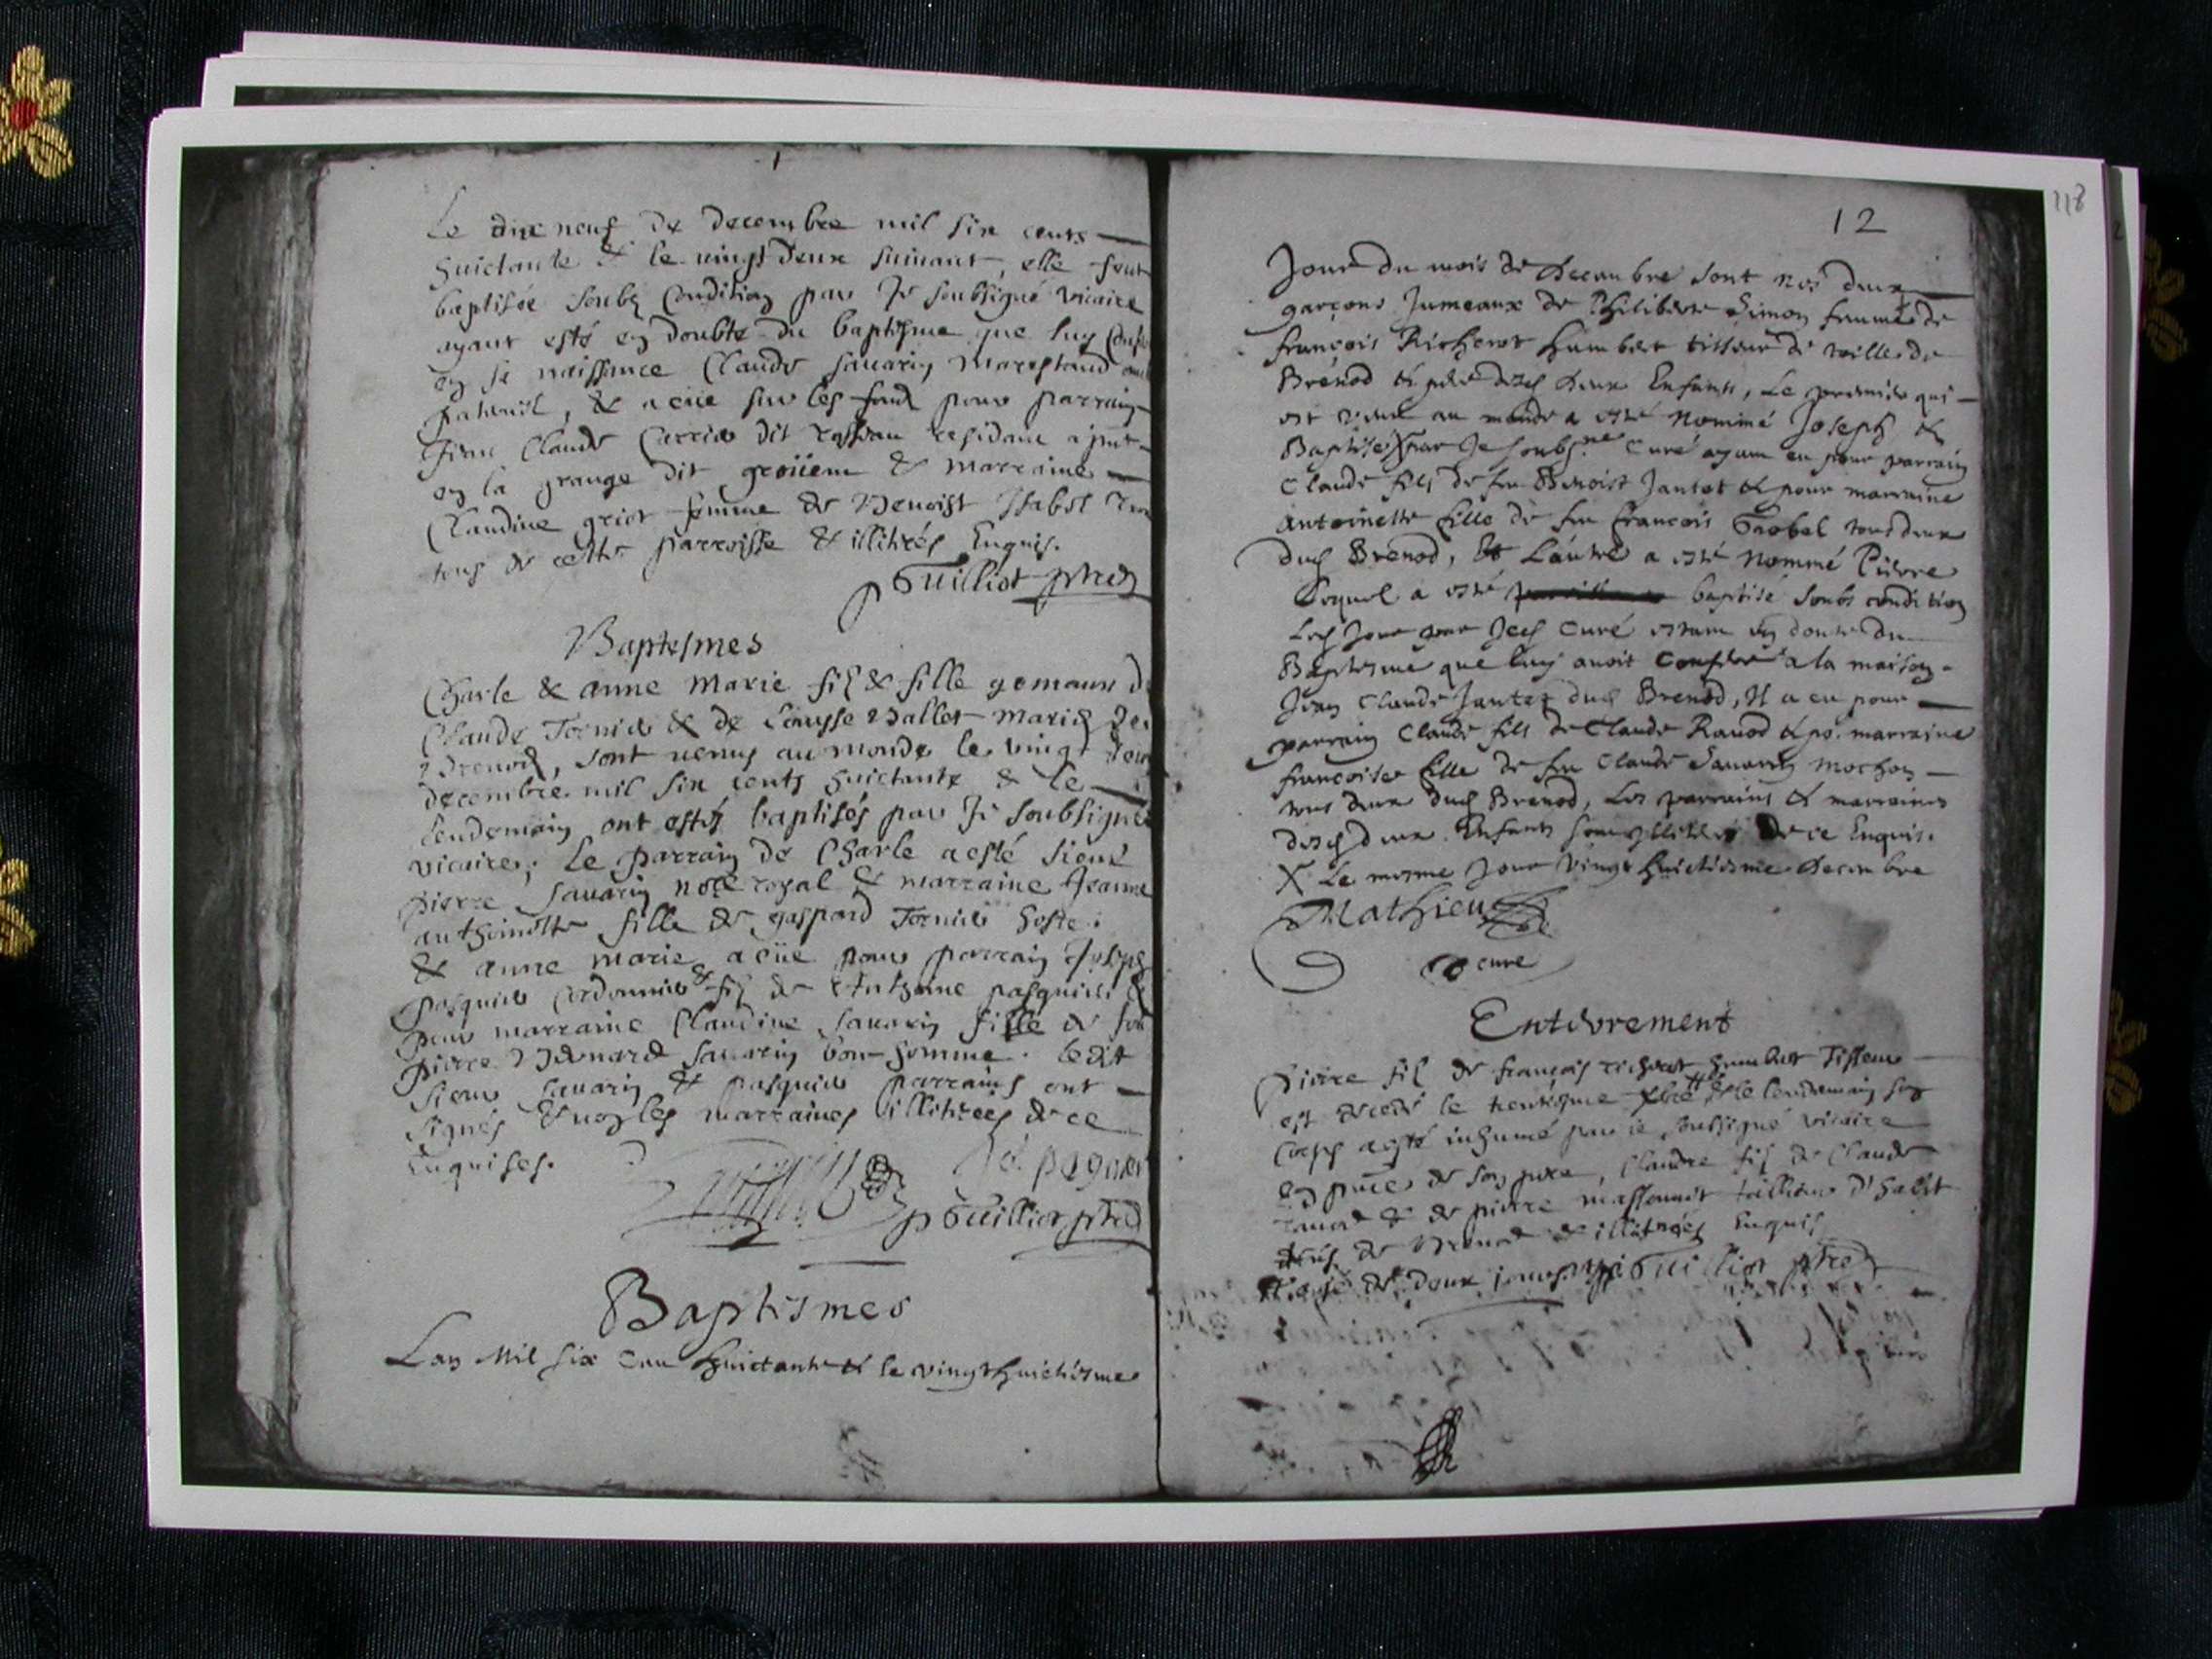 Le dix neuf de decembre mil six cents
huictante & le vingt deux suivant, elle feut
baptisée soubz condition par Je soubsigné vicaire
ayant esté en doubte du baptesme que luy
en sa naissance Claude savarin mareschaud
paternel, & a eüe sur les fond pour parrain
Jean Claude Carrier dit residant
en la grange dit & marraine
Claudine griot femme de Benoist
tous de cette parroisse & illitirés Enquis.
p Guilliot ptre
Baptesmes
Charle & anne Marie fil & fille gemaux d
Claude Tornier & de Louysse Ballet mariez
Brenod, sont venus au monde le vingt
decembre mil six cents huictante & le
lendemain ont estés baptisés par Je soubsigné
vicaire; le parrain de Charle a esté sieur
pierre savarin nore royal & marraine Jeanne
anthoinette fille de gaspard Tornier hoste;
& anne marie a eüe pour parrain Joseph
pasquier cordonnier fil de Anthoine pasquier &
pour marraine Claudine savarin fille de feu
pierre Bernard savarin bon homme. ledit
sieur savarin & pasquier parrains ont
signés & non les marraines illitirées de ce
Enquises.
p Guilliot ptre
Baptesmes
Lan Mil six cen huictante & le vingthuictiesme
118
12
Jour du mois de decembre sont nés deux
garçons Jumeaux de Philiberte Simon femme de
françois Richerot humbert tisseur de toille de
Brénod & père desd deux Enfants, Le premier qui
est venu au monde a esté Nommé Joseph &
Baptisé X par Je soubsne Curé ayant eu pour parrain
Claude fils de feu Benoist Jantet & pour marraine
Antoinette fille de feu françois Grobel tous deux
dud Brénod, Et L'autre a esté Nommé Pierre
Lequel a esté baptisé soubs condition
Led Jour par Jed Curé estant en doute du
Baptesme que luy avoit Conferé a la maison
Jean Claude Jantet dud Brenod, Il a eu pour
parrain Claude fils de Claude Ravod & po. marraine
françoise fille de feu Claude Savarin mochon
tous deux dud Brenod, Les parrains & marraines
desd deux Enfants sont illitérés de ce Enquis.
X Le mesme Jour Vingt huictiesme decembre
Mathieu
curé
Enterement
Pierre fil de françois richerot humbert Tisseur
est decedé le trentiesme xbre & le lendemain son
Corps a esté inhumé par je soubsigné vicaire
en pnce de son pere, Claude fil de Claude
ravod & de pierre massonnet tallieur d'habit
tous de Brenod & illitirés Enquis
agé de deux jours. p Guilliot ptre